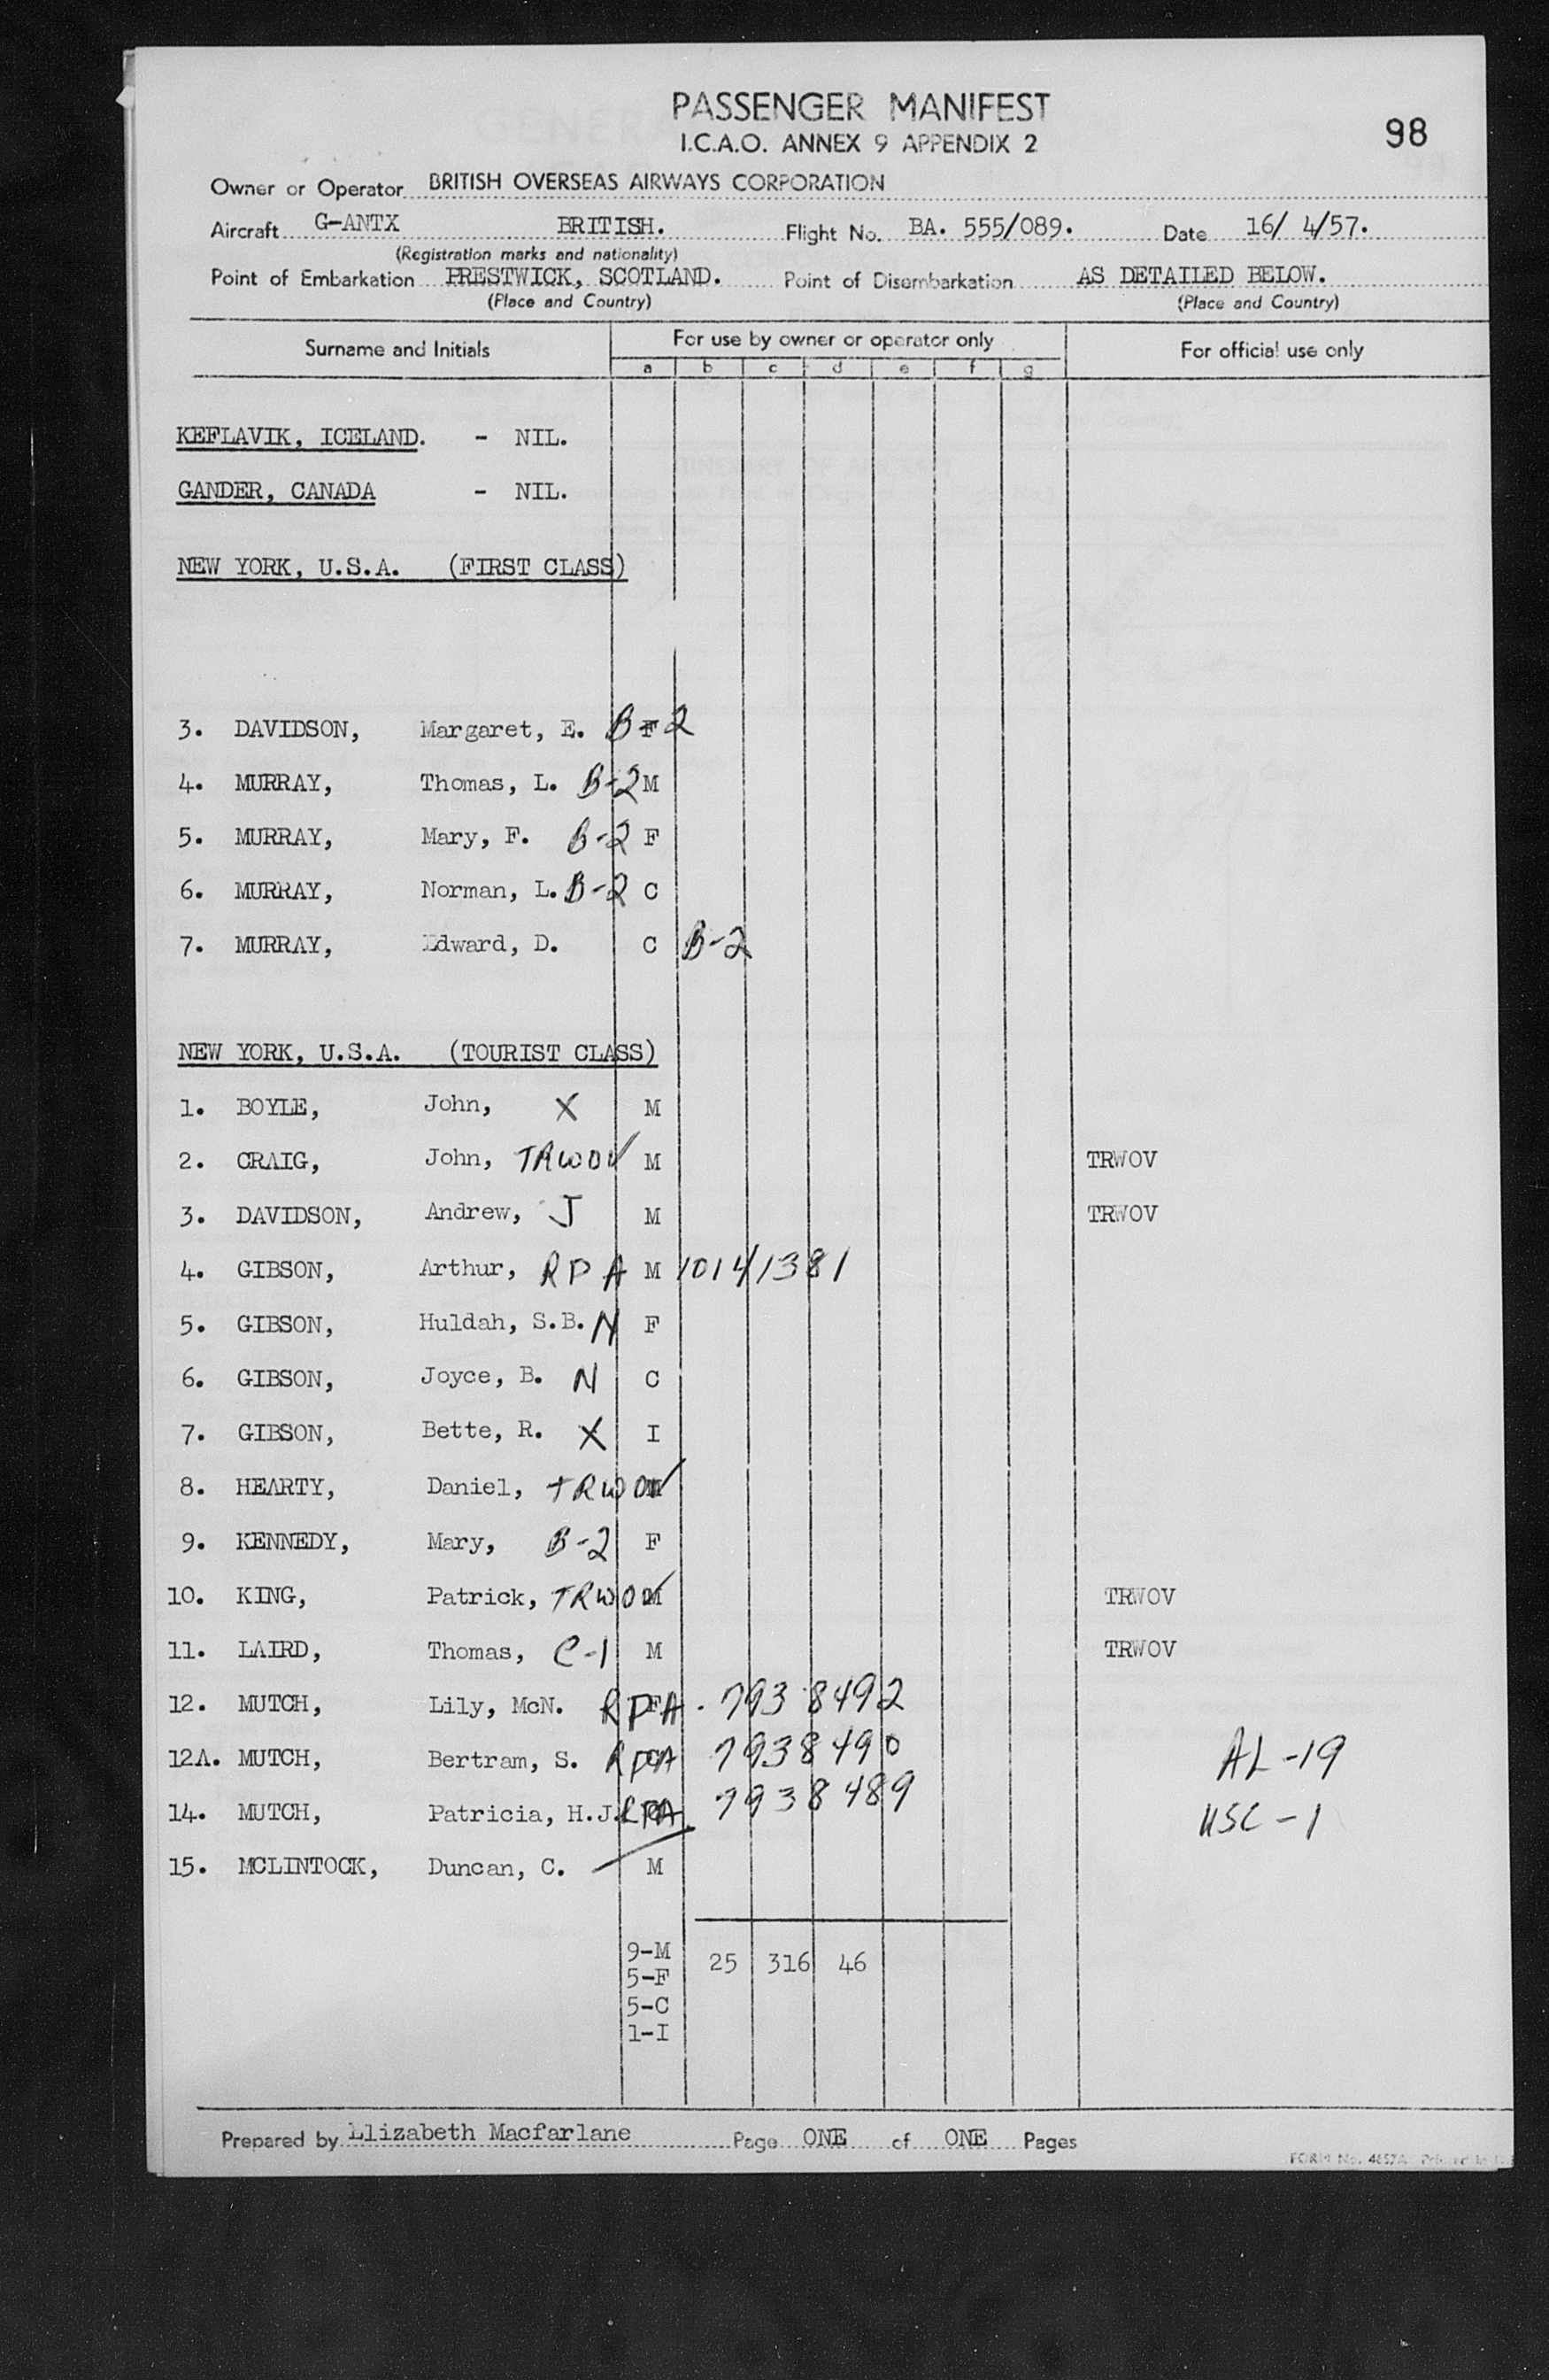 PASSENGER MANIFEST
I.C.A.O. ANNEX 9 APPENDIX 2
98
Owner or Operator BRITISH OVERSEAS AIRWAYS CORPORATION
Aircraft G-ANTX BRITISH. Flight No. BA. 555/089. Date 16/ 4/57.
(Registration marks and nationality)
Point of Embarkation PRESTWICK, SCOTLAND. Point of Disembarkation AS DETAILED BELOW.
(Place and Country) (Place and Country)
Surname and Initials For use by owner or operator only For official use only
a b c d e f g
KEFLAVIK, ICELAND. - NIL.
GANDER, CANADA - NIL.
NEW YORK, U.S.A. (FIRST CLASS)
3. DAVIDSON, Margaret, E. B-2 F
4. MURRAY, Thomas, L. B-2 M
5. MURRAY, Mary, F. B-2 F
6. MURRAY, Norman, L. B-2 C
7. MURRAY, Edward, D. C B-2
NEW YORK, U.S.A. (TOURIST CLASS)
1. BOYLE, John, X M
2. CRAIG, John, TRWOV M TRWOV
3. DAVIDSON, Andrew, J M TRWOV
4. GIBSON, Arthur, RPA M 10141381
5. GIBSON, Huldah, S.B. N F
6. GIBSON, Joyce, B. N C
7. GIBSON, Bette, R. X I
8. HEARTY, Daniel, TRWOV M
9. KENNEDY, Mary, B-2 F
10. KING, Patrick, TRWOV M TRWOV
11. LAIRD, Thomas, C-1 M TRWOV
12. MUTCH, Lily, McN. RPA F 7938492
12A. MUTCH, Bertram, S. RPA C 7938490 AL-19
14. MUTCH, Patricia, H.J. RPA C 7938489 USC-1
15. MCLINTOCK, Duncan, C. M
9-M 25 316 46
5-F
5-C
1-I
Prepared by Elizabeth Macfarlane Page ONE of ONE Pages
FORM No. 4657A